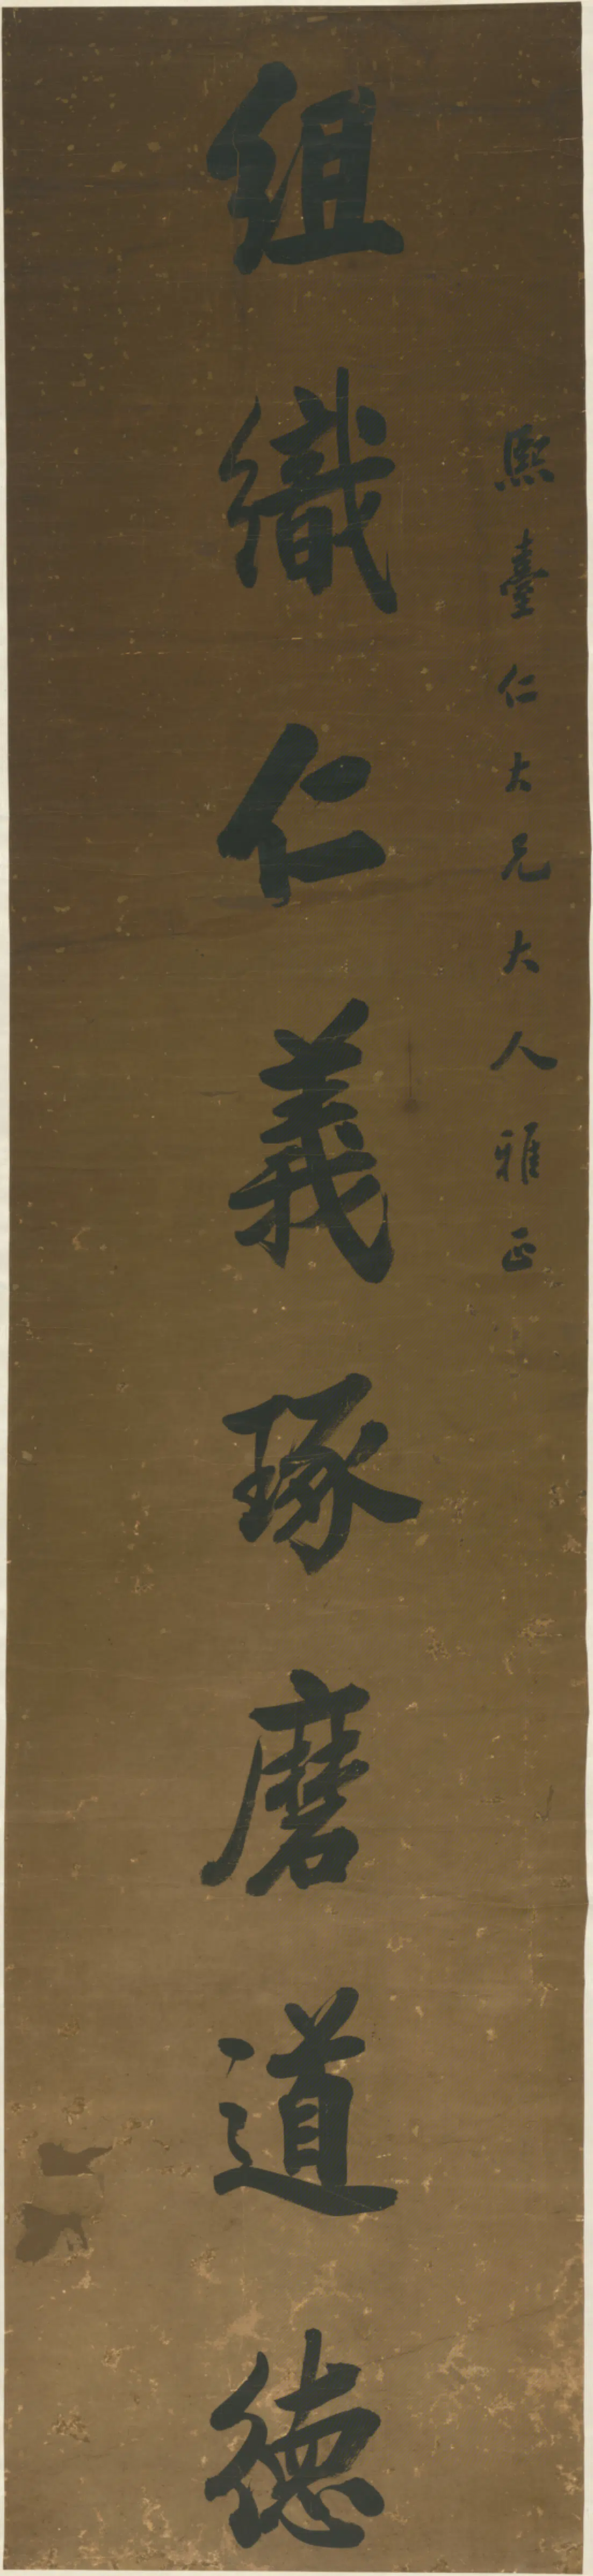 熙臺仁大兄大人雅正
組織仁義琢磨道德